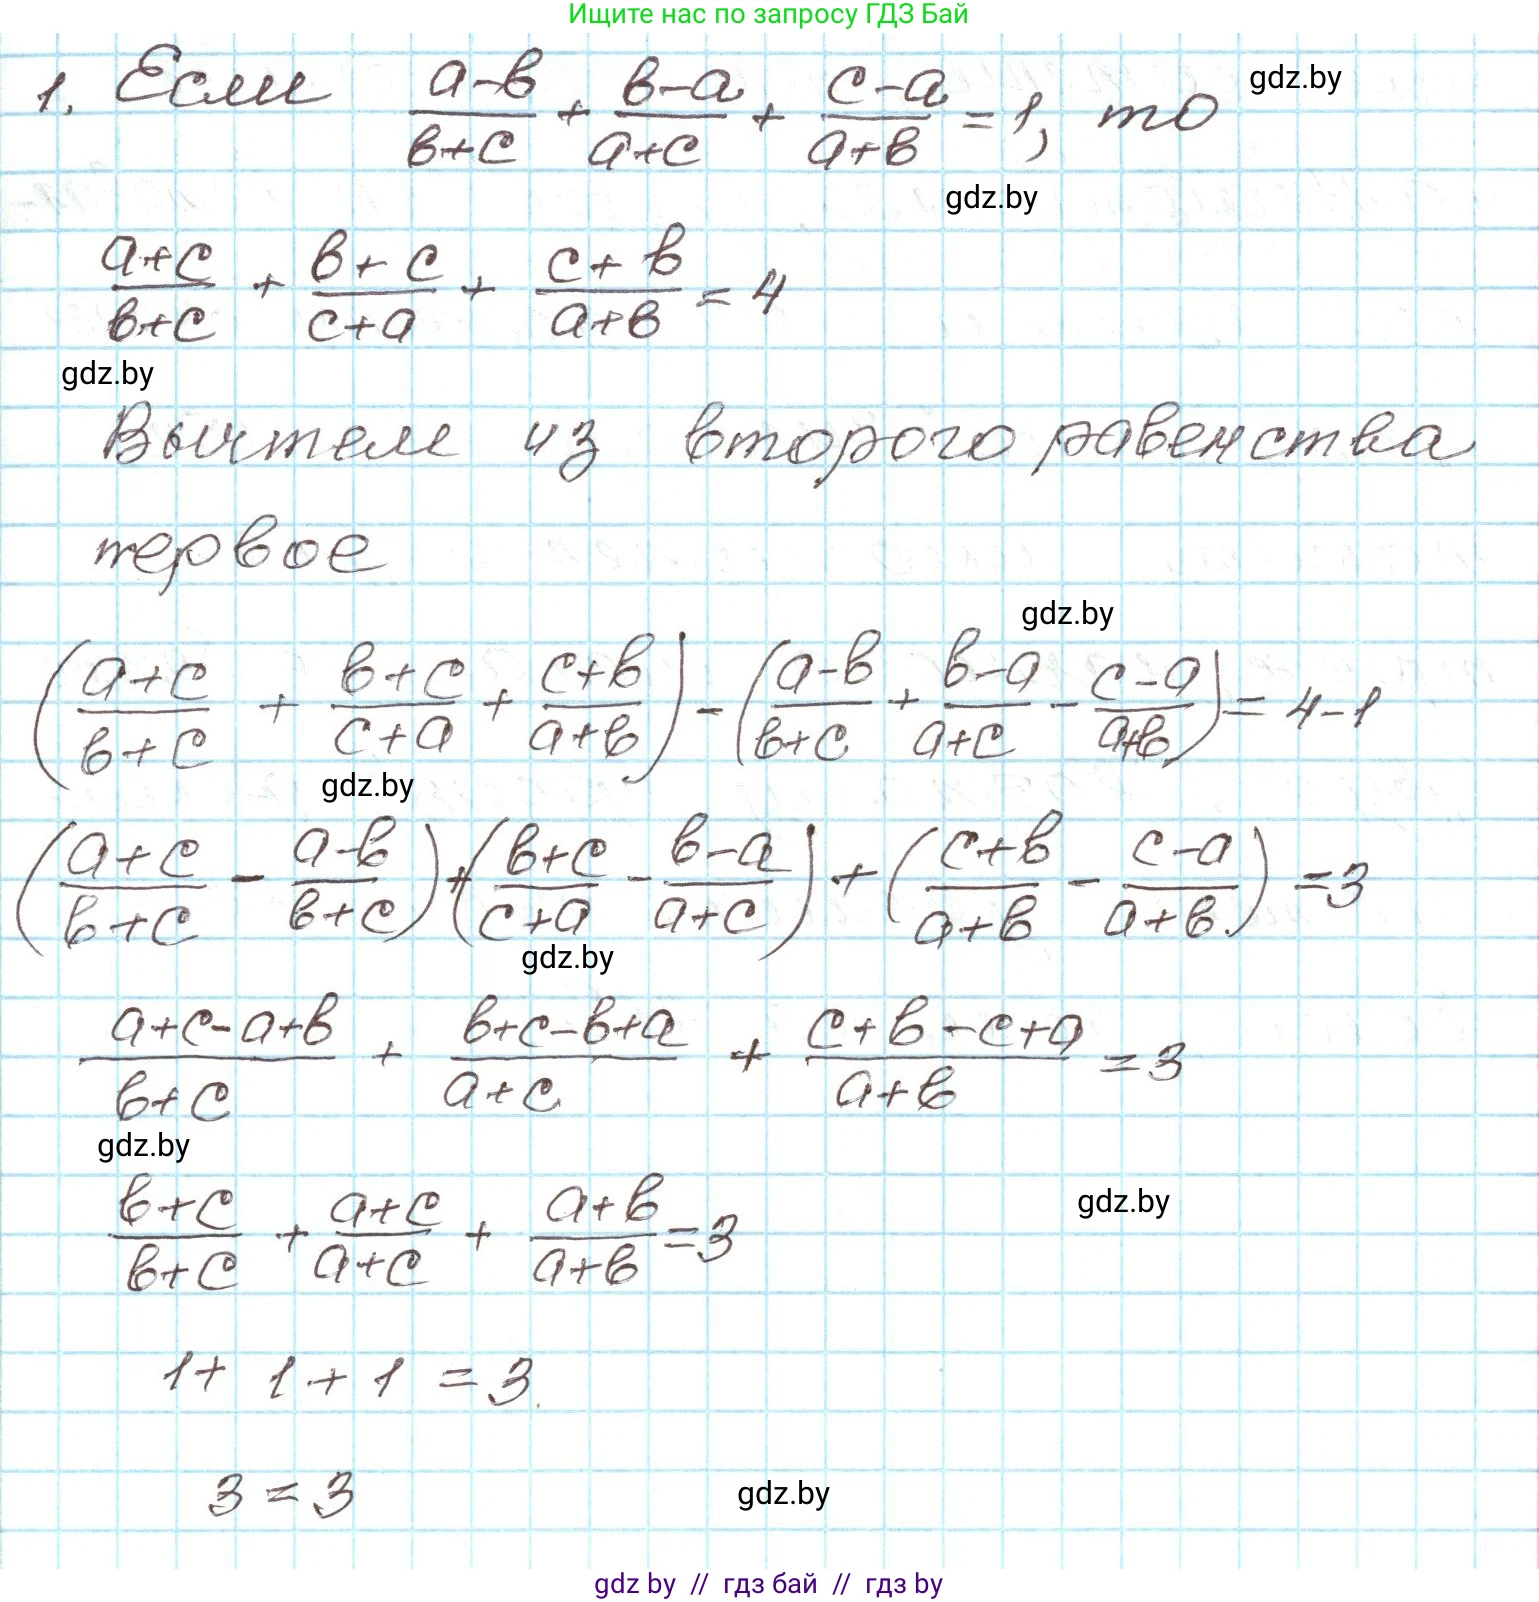 Ищите нас по запросу ГДЗ Бай
1. Если (a-в)/(в+c) + (в-a)/(a+c) + (c-a)/(a+в) = 1, то
gdz.by
gdz.by
(a+c)/(в+c) + (в+c)/(c+a) + (c+в)/(a+в) = 4
gdz.by
Вычтем из второго равенства
первое
gdz.by
((a+c)/(в+c) + (в+c)/(c+a) + (c+в)/(a+в)) - ((a-в)/(в+c) + (в-a)/(a+c) - (c-a)/(a+в)) = 4-1
gdz.by
((a+c)/(в+c) - (a-в)/(в+c)) + ((в+c)/(c+a) - (в-a)/(a+c)) + ((c+в)/(a+в) - (c-a)/(a+в)) = 3
gdz.by
(a+c-a+в)/(в+c) + (в+c-в+a)/(a+c) + (c+в-c+a)/(a+в) = 3
gdz.by
(в+c)/(в+c) + (a+c)/(a+c) + (a+в)/(a+в) = 3
gdz.by
1+ 1+1 = 3.
3 = 3
gdz.by
gdz by // гдз бай // гдз by